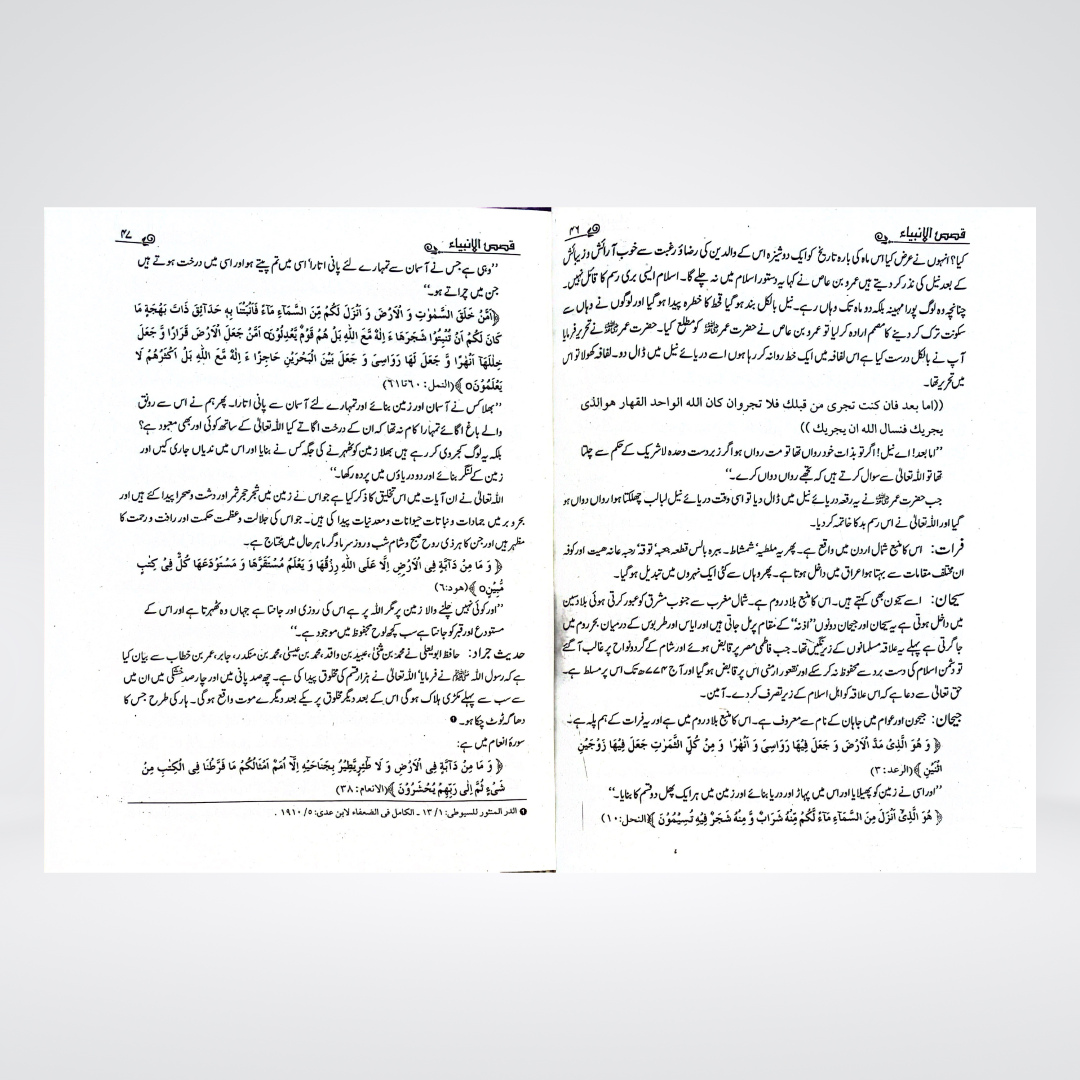 قصص الانبیاء ۴۶
کیا؟ انہوں نے عرض کیا اس ماہ کی بارہ تاریخ کو ایک دوشیزہ اس کے والدین کی رضاؤ رغبت سے خوب آرائش و زیبائش
کے بعد نیل کی نذر کر دیتے ہیں عمرو بن عاص نے کہا یہ دستور اسلام میں نہ چلے گا۔ اسلام ایسی بری رسم کا قائل نہیں۔
چنانچہ وہ لوگ پورا مہینہ بلکہ دو ماہ تک وہاں رہے۔ نیل بالکل بند ہو گیا قحط کا خطرہ پیدا ہو گیا اور لوگوں نے وہاں سے
سکونت ترک کر دینے کا مصمم ارادہ کر لیا تو عمرو بن عاص نے حضرت عمر کو مطلع کیا۔ حضرت عمر نے تحریر فرمایا
آپ نے بالکل درست کیا ہے اس لفافہ میں ایک خط روانہ کر رہا ہوں اسے دریائے نیل میں ڈال دو۔ لفافہ کھولا تو اس
میں تحریر تھا۔
((اما بعد فان كنت تجرى من قبلك فلا تجروان كان الله الواحد القهار هوالذى
يجريك فنسال الله ان يجريك ))
’’اما بعد! اے نیل! اگر تو بذات خود رواں تھا تو مت رواں ہو اگر زبردست وحدہ لا شریک کے حکم سے چلتا
تھا تو اللہ تعالیٰ سے سوال کرتے ہیں کہ تجھے رواں دواں کرے۔‘‘
جب حضرت عمر نے یہ رقعہ دریائے نیل میں ڈال دیا تو اسی وقت دریائے نیل لبالب چھلکتا ہوا رواں دواں ہو
گیا اور اللہ تعالیٰ نے اس رسم بد کا خاتمہ کر دیا۔
فرات: اس کا منبع شمال اردن میں واقع ہے۔ پھر یہ ملطیہ‘ شمشاط۔ بیرہ بالس قلعہ جعبہ‘ توقہ‘ رحبہ عانہ ھیت اور کوفہ
ان مختلف مقامات سے بہتا ہوا عراق میں داخل ہوتا ہے۔ پھر وہاں سے کئی ایک نہروں میں تبدیل ہو گیا۔
سیحان: اسے سیحون بھی کہتے ہیں۔ اس کا منبع بلاد روم ہے۔ شمال مغرب سے جنوب مشرق کو عبور کرتی ہوئی بلاد سین
میں داخل ہوتی ہے یہ سیحان اور جیحان دونوں ’’اذنہ‘‘ کے مقام پر مل جاتی ہیں اور ایاس اور طربوں کے درمیان بحر روم میں
جا گرتی ہے پہلے یہ علاقہ مسلمانوں کے زیر نگیں تھا۔ جب فاطمی مصر پر قابض ہوئے اور شام کے گرد و نواح پر غالب آ گئے
تو دشمن اسلام کی دست برد سے محفوظ نہ کر سکے اور تقفور ارمنی اس پر قابض ہو گیا اور آج ۷۷۴ھ تک اس پر مسلط ہے۔
حق تعالیٰ سے دعا ہے کہ اس علاقہ کو اہل اسلام کے زیر تصرف کر دے۔ آمین۔
جیحان: جیحون اور عوام میں جاہان کے نام سے معروف ہے۔ اس کا منبع بلاد روم میں ہے اور یہ فرات کے ہم پلہ ہے۔
﴿ وَ هُوَ الَّذِىْ مَدَّ الْاَرْضَ وَ جَعَلَ فِيْهَا رَوَاسِىَ وَ اَنْهٰرًا وَ مِنْ كُلِّ الثَّمَرٰتِ جَعَلَ فِيْهَا زَوْجَيْنِ
اثْنَيْنِ ﴾(الرعد: ۳)
’’اور اسی نے زمین کو پھیلایا اور اس میں پہاڑ اور دریا بنائے اور زمین میں ہر ایک پھل دو قسم کا بنایا۔‘‘
﴿ هُوَ الَّذِىْٓ اَنْزَلَ مِنَ السَّمَآءِ مَآءً لَّكُمْ مِّنْهُ شَرَابٌ وَّ مِنْهُ شَجَرٌ فِيْهِ تُسِيْمُوْنَ ﴾(النحل: ۱۰)
قصص الانبیاء ۴۷
’’وہی ہے جس نے آسمان سے تمہارے لئے پانی اتارا‘ اسی میں تم پیتے ہو اور اسی میں درخت ہوتے ہیں
جن میں چراتے ہو۔‘‘
﴿اَمَّنْ خَلَقَ السَّمٰوٰتِ وَ الْاَرْضَ وَ اَنْزَلَ لَكُمْ مِّنَ السَّمَآءِ مَآءً فَاَنْبَتْنَا بِهٖ حَدَآئِقَ ذَاتَ بَهْجَةٍ مَا
كَانَ لَكُمْ اَنْ تُنْبِتُوْا شَجَرَهَا ءَ اِلٰهٌ مَّعَ اللّٰهِ بَلْ هُمْ قَوْمٌ يَّعْدِلُوْنَ۝ اَمَّنْ جَعَلَ الْاَرْضَ قَرَارًا وَّ جَعَلَ
خِلٰلَهَآ اَنْهٰرًا وَّ جَعَلَ لَهَا رَوَاسِىَ وَ جَعَلَ بَيْنَ الْبَحْرَيْنِ حَاجِزًا ءَ اِلٰهٌ مَّعَ اللّٰهِ بَلْ اَكْثَرُهُمْ لَا
يَعْلَمُوْنَ۝ ﴾(النمل: ۶۰ تا ۶۱)
’’بھلا کس نے آسمان اور زمین بنائے اور تمہارے لئے آسمان سے پانی اتارا۔ پھر ہم نے اس سے رونق
والے باغ اگائے تمہارا کام نہ تھا کہ ان کے درخت اگاتے کیا اللہ تعالیٰ کے ساتھ کوئی اور بھی معبود ہے؟
بلکہ یہ لوگ کجروی کر رہے ہیں بھلا زمین کو ٹھہرنے کی جگہ کس نے بنایا اور اس میں ندیاں جاری کیں اور
زمین کے لنگر بنائے اور دو دریاؤں میں پردہ رکھا۔‘‘
اللہ تعالیٰ نے ان آیات میں اس تخلیق کا ذکر کیا ہے جو اس نے زمین میں شجر حجر ثمر اور دشت و صحرا پیدا کئے ہیں اور
بحر و بر میں جمادات و نباتات حیوانات و معدنیات پیدا کی ہیں۔ جو اس کی جلالت و عظمت حکمت اور رافت و رحمت کا
مظہر ہیں اور جن کا ہر ذی روح صبح و شام شب و روز سرما و گرما ہر حال میں محتاج ہے۔
﴿ وَ مَا مِنْ دَآبَّةٍ فِى الْاَرْضِ اِلَّا عَلَى اللّٰهِ رِزْقُهَا وَ يَعْلَمُ مُسْتَقَرَّهَا وَ مُسْتَوْدَعَهَا كُلٌّ فِىْ كِتٰبٍ
مُّبِيْنٍ۝ ﴾(هود: ۶)
’’اور کوئی نہیں چلنے والا زمین پر مگر اللہ پر ہے اس کی روزی اور جانتا ہے جہاں وہ ٹھہرتا ہے اور اس کے
مستودع اور قبر کو جانتا ہے سب کچھ لوح محفوظ میں موجود ہے۔‘‘
حدیث جراد: حافظ ابو یعلیٰ نے محمد بن مثنیٰ، عبید بن واقد، محمد بن عیسیٰ، محمد بن منکدر، جابر، عمر بن خطاب سے بیان کیا
ہے کہ رسول اللہ ﷺ نے فرمایا‘ اللہ تعالیٰ نے ہزار قسم کی مخلوق پیدا کی ہے۔ چھ صد پانی میں اور چار صد خشکی میں ان میں
سے سب سے پہلے مکڑی ہلاک ہو گی اس کے بعد دیگر مخلوق پر یکے بعد دیگرے موت واقع ہو گی۔ ہار کی طرح جس کا
دھاگہ ٹوٹ چکا ہو۔ ❶
سورۂ انعام میں ہے:
﴿ وَ مَا مِنْ دَآبَّةٍ فِى الْاَرْضِ وَ لَا طٰٓئِرٍ يَّطِيْرُ بِجَنَاحَيْهِ اِلَّآ اُمَمٌ اَمْثَالُكُمْ مَا فَرَّطْنَا فِى الْكِتٰبِ مِنْ
شَىْءٍ ثُمَّ اِلٰى رَبِّهِمْ يُحْشَرُوْنَ ﴾(الانعام: ۳۸)
❶ الدر المنثور للسيوطى: ۱/ ۱۳ ۔ الكامل فى الضعفاء لابن عدى: ۵/ ۱۹۱۰ .